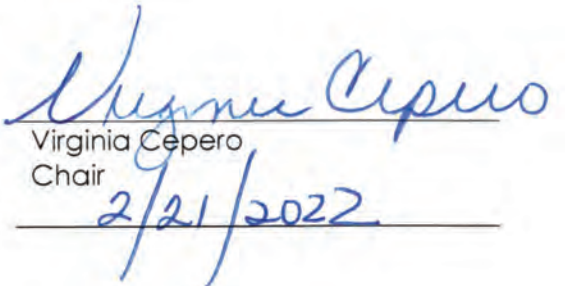 Virginia Cepero
Virginia Cepero
Chair
2/21/2022